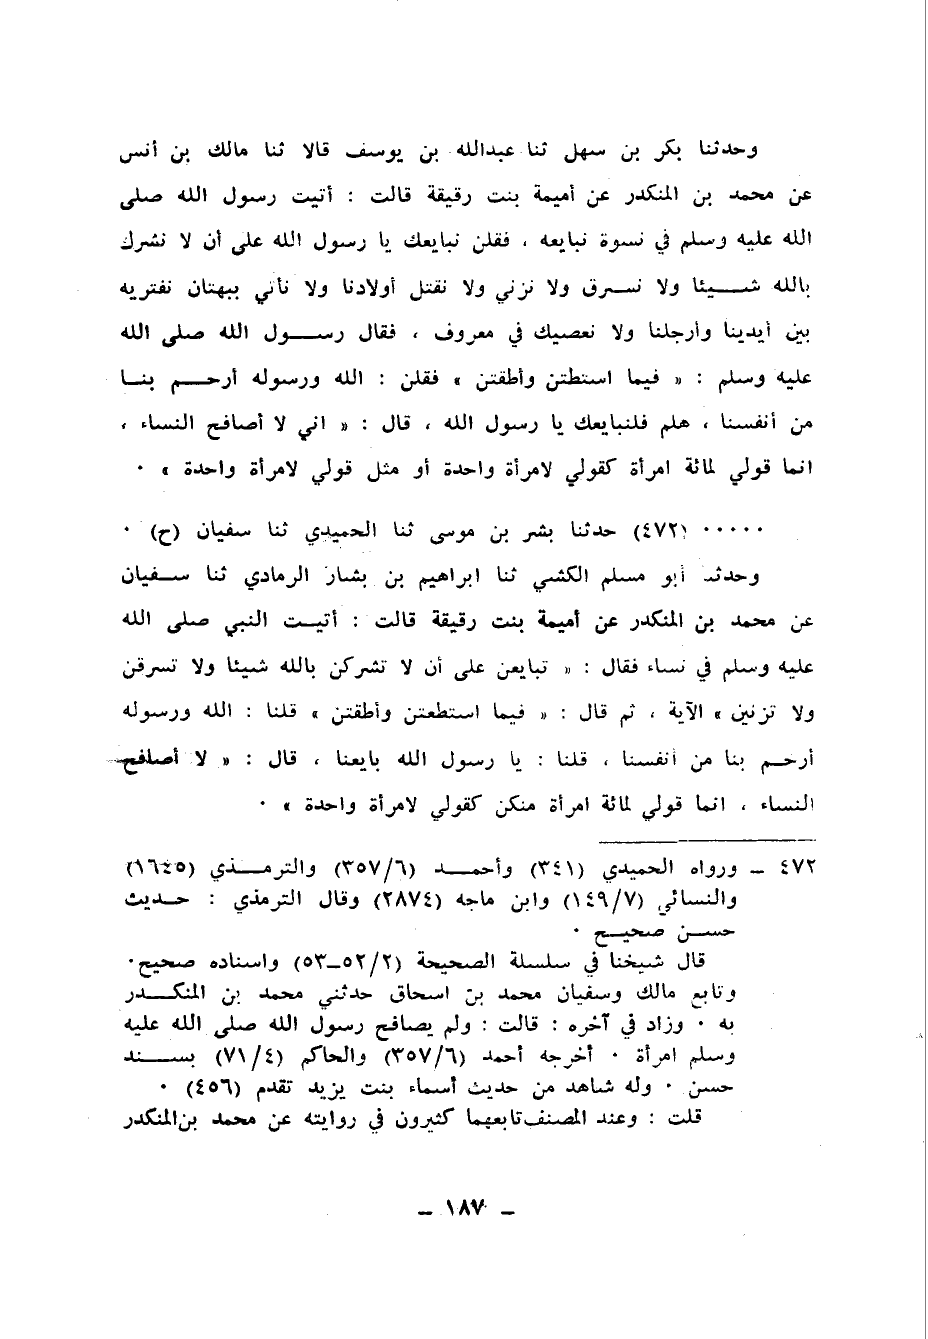 وحدثنا بكر بن سهل ثنا عبدالله بن يوسف قالا ثنا مالك بن أنس
عن محمد بن المنكدر عن أميمة بنت رقيقة قالت : أتيت رسول الله صلى
الله عليه وسلم في نسوة نبايعه ، فقلن نبايعك يا رسول الله على أن لا نشرك
بالله شيئا ولا نسرق ولا نزني ولا نقتل أولادنا ولا نأتي ببهتان نفتريه
بين أيدينا وأرجلنا ولا نعصيك في معروف ، فقال رسول الله صلى الله
عليه وسلم : « فيما استطتن وأطقتن » فقلن : الله ورسوله أرحم بنا
من أنفسنا ، هلم فلنبايعك يا رسول الله ، قال : « اني لا أصافح النساء ،
انما قولي لمائة امرأة كقولي لامرأة واحدة أو مثل قولي لامرأة واحدة » ٠
٠٠٠٠٠ (٤٧٢) حدثنا بشر بن موسى ثنا الحميدي ثنا سفيان (ح) ٠
وحدثنا أبو مسلم الكشي ثنا ابراهيم بن بشار الرمادي ثنا سفيان
عن محمد بن المنكدر عن أميمة بنت رقيقة قالت : أتيت النبي صلى الله
عليه وسلم في نساء فقال : « تبايعن على أن لا تشركن بالله شيئا ولا تسرقن
ولا تزنين » الآية ، ثم قال : « فيما استطعتن وأطقتن » قلنا : الله ورسوله
أرحم بنا من أنفسنا ، قلنا : يا رسول الله بايعنا ، قال : « لا أصافح
النساء ، انما قولي لمائة امرأة منكن كقولي لامرأة واحدة » ٠
٤٧٢ ـ ورواه الحميدي (٣٤١) وأحمد (٣٥٧/٦) والترمذي (١٦٤٥)
والنسائي (١٤٩/٧) وابن ماجه (٢٨٧٤) وقال الترمذي : حديث
حسن صحيح ٠
قال شيخنا في سلسلة الصحيحة (٥٢/٢ـ٥٣) واسناده صحيح٠
وتابع مالك وسفيان محمد بن اسحاق حدثني محمد بن المنكدر
به ٠ وزاد في آخره : قالت : ولم يصافح رسول الله صلى الله عليه
وسلم امرأة ٠ أخرجه أحمد (٣٥٧/٦) والحاكم (٧١/٤) بسند
حسن ٠ وله شاهد من حديث أسماء بنت يزيد تقدم (٤٥٦) ٠
قلت : وعند المصنف تابعهما كثيرون في روايته عن محمد بن المنكدر
ـ ١٨٧ ـ